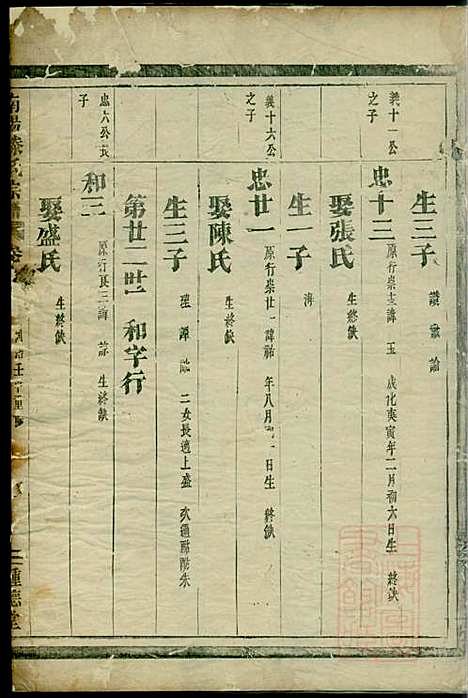 生三子
義十一公之子
忠十三 原行崇支諱玉 成化庚寅年二月初六日生 終缺
娶張氏 生終缺
生一子 海
義十六公之子
忠廿一 原行崇廿一諱祐 年八月初一日生 終缺
娶陳氏 生終缺
生三子 二女長適上盛 次適酤酤朱
第廿二世 和字行
忠六公長子
和三 原行良三諱 生終缺
娶盛氏 生終缺
南陽 氏宗譜
種德堂